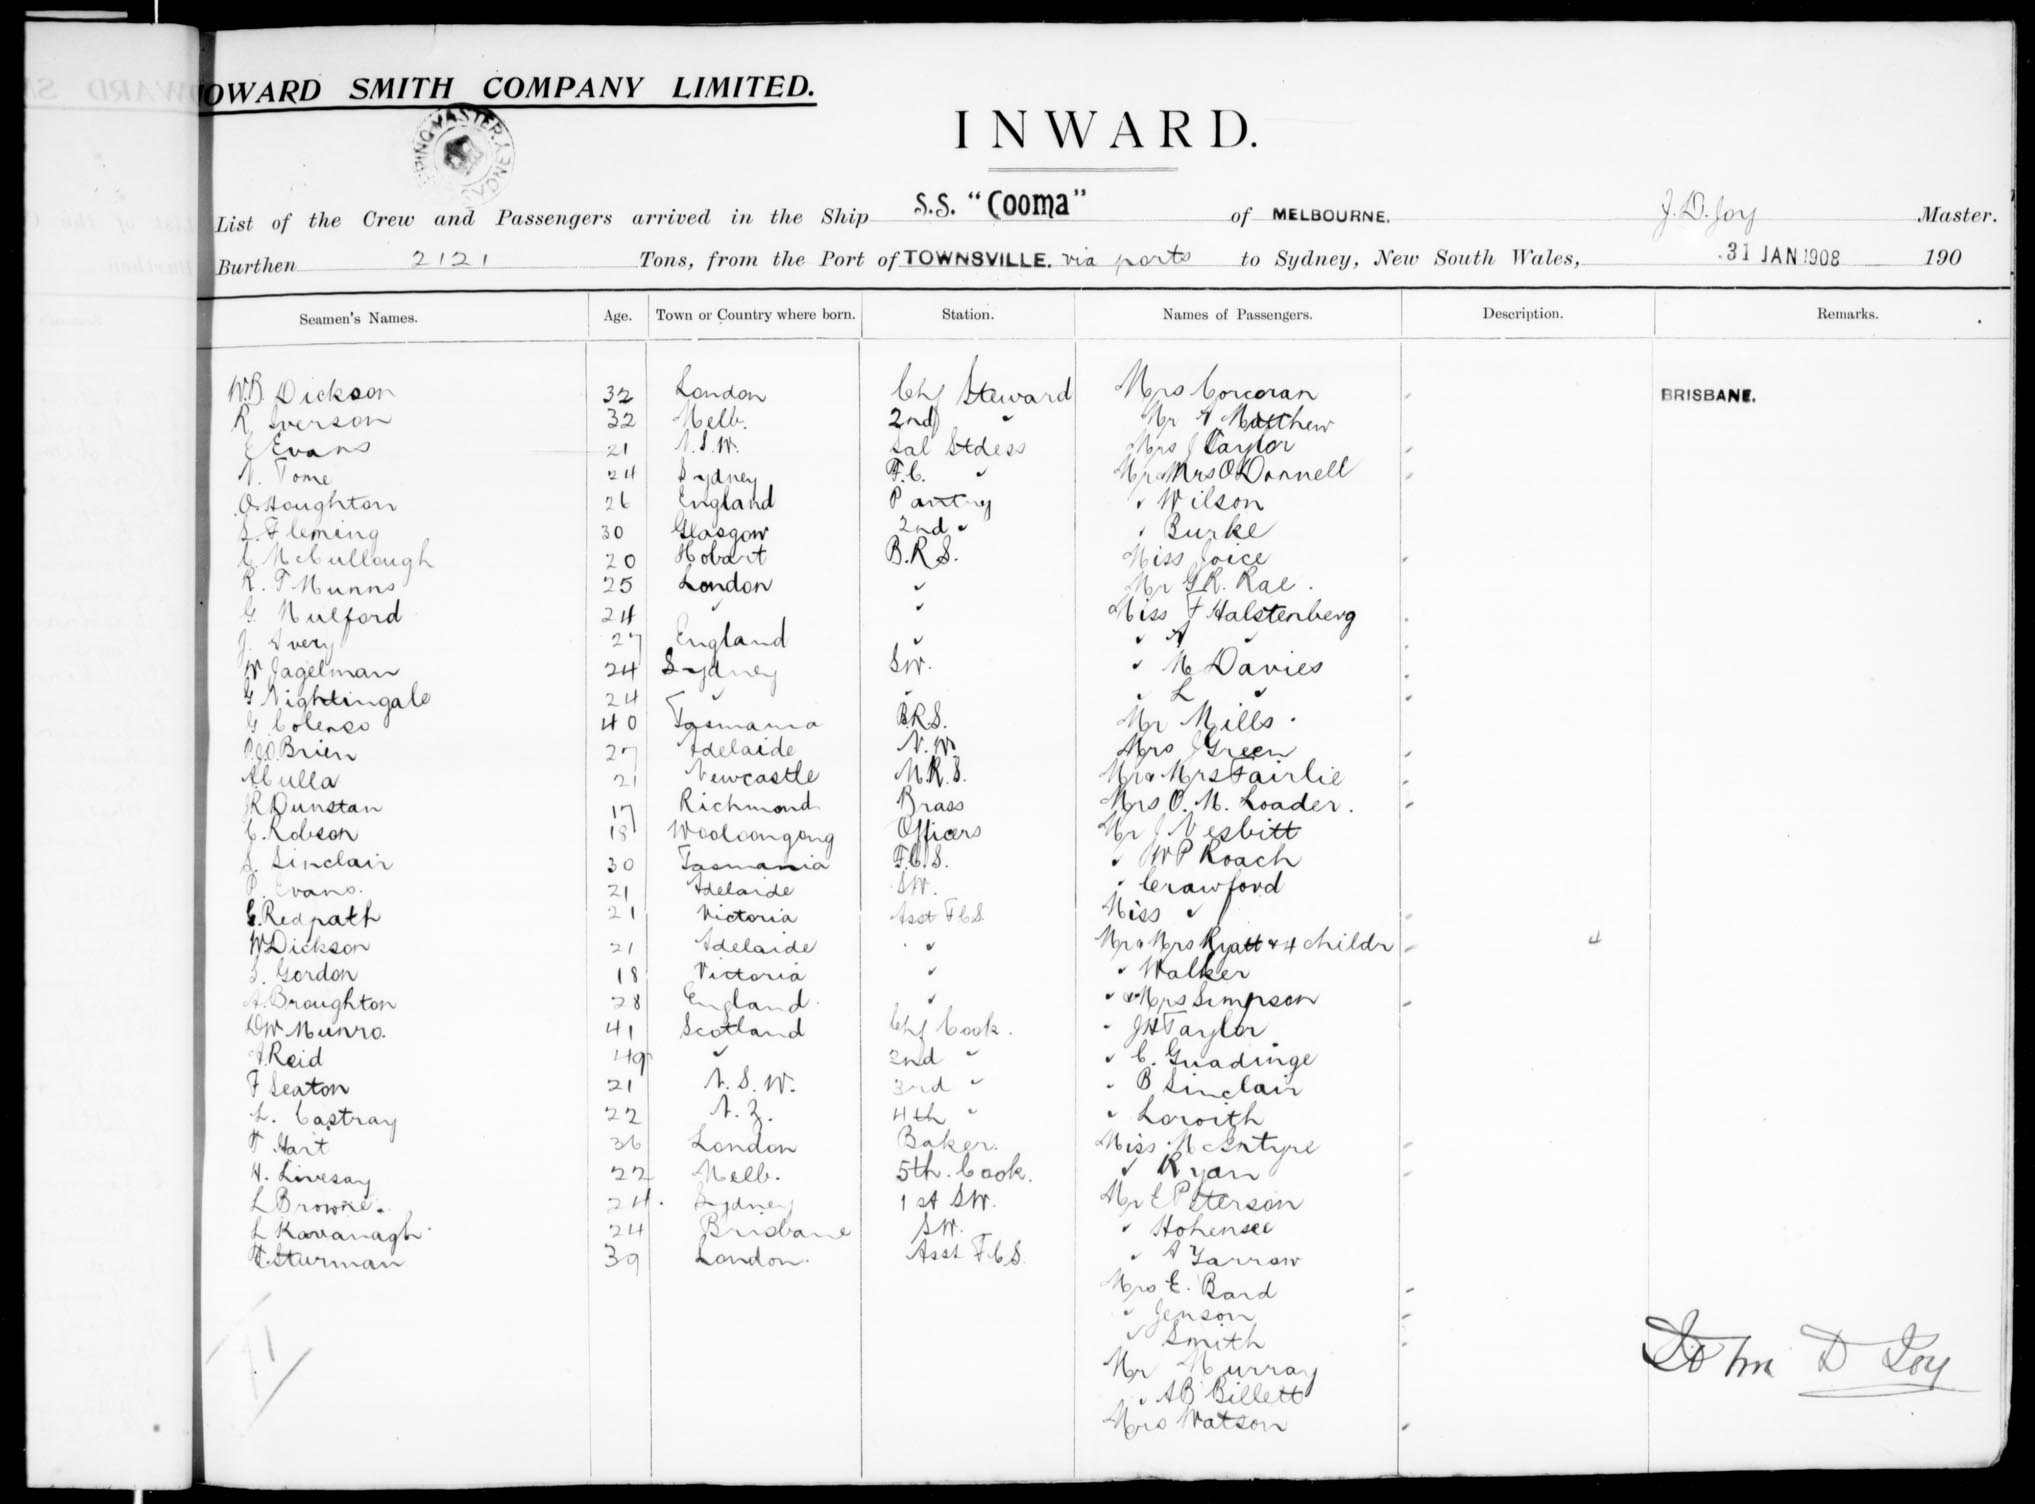 OWARD SMITH COMPANY LIMITED.
INWARD.
List of the Crew and Passengers arrived in the Ship S.S. "Cooma" of MELBOURNE. J.D. Joy Master.
Burthen 2121 Tons, from the Port of TOWNSVILLE. via ports to Sydney, New South Wales, 31 JAN 1908 190
Seamen's Names. Age. Town or Country where born. Station. Names of Passengers. Description. Remarks.
W.B. Dickson 32 London Chf Steward Mrs Corcoran BRISBANE.
R Iverson 32 Melb. 2nd " Mr A Matthew
E Evans 21 N.S.W. Sal Stdess Mrs J Taylor
N. Tome 24 Sydney F.C. " Mr & Mrs O'Donnell
O. Houghton 26 England Pantry " Wilson
S. Fleming 30 Glasgow 2nd " " Burke
C McCullough 20 Hobart B.R.S. Miss Joice
R. T Munns 25 London " Mr G.R. Rae.
G. Mulford 24 " " Miss F Halstenberg
J. Avery 27 England " " A "
W Jagelman 24 Sydney SW. " M Davies
G Nightingale 24 " " " L "
G. Colenso 40 Tasmania B.R.S. Mr Mills.
O'Brien 27 Adelaide N.W. Mrs J Green
A Culla 21 Newcastle M.R.S. Mr & Mrs Fairlie
JR Dunstan 17 Richmond Brass Mrs O. M. Loader.
C. Robson 18 Wooloongong Officers Mr J Nesbitt
S. Sinclair 30 Tasmania F.C.S. " W P Roach
P. Evans. 21 Adelaide SW. " Crawford
G. Redpath 21 Victoria Asst F.C.S. Miss "
W Dickson 21 Adelaide " Mr & Mrs Pyatt & 4 childr 4
S. Gordon 18 Victoria " " Walker
A. Broughton 28 England. " " & Mrs Simpson
D W Munro. 41 Scotland Chf Cook. " J H Taylor
A. Reid 49 " 2nd " " C. Guadinge
F Seaton 21 N.S.W. 3rd " " B Sinclair
L. Castray 22 N.Z. 4th " "
Hart 36 London Baker. Miss McIntyre
H. Livesay 22 Melb. 5th. Cook. " Ryan
L Browne. 24. Sydney 1st SW. Mr E Peterson
L Kavanagh 24 Brisbane SW. " Hohensee
Sturman 39 London. Asst F.C.S. " A Yarrow
Mrs E. Bard
" Jenson
" Smith
Mr Murray
" AB Billett
Mrs Watson
71
John D Joy